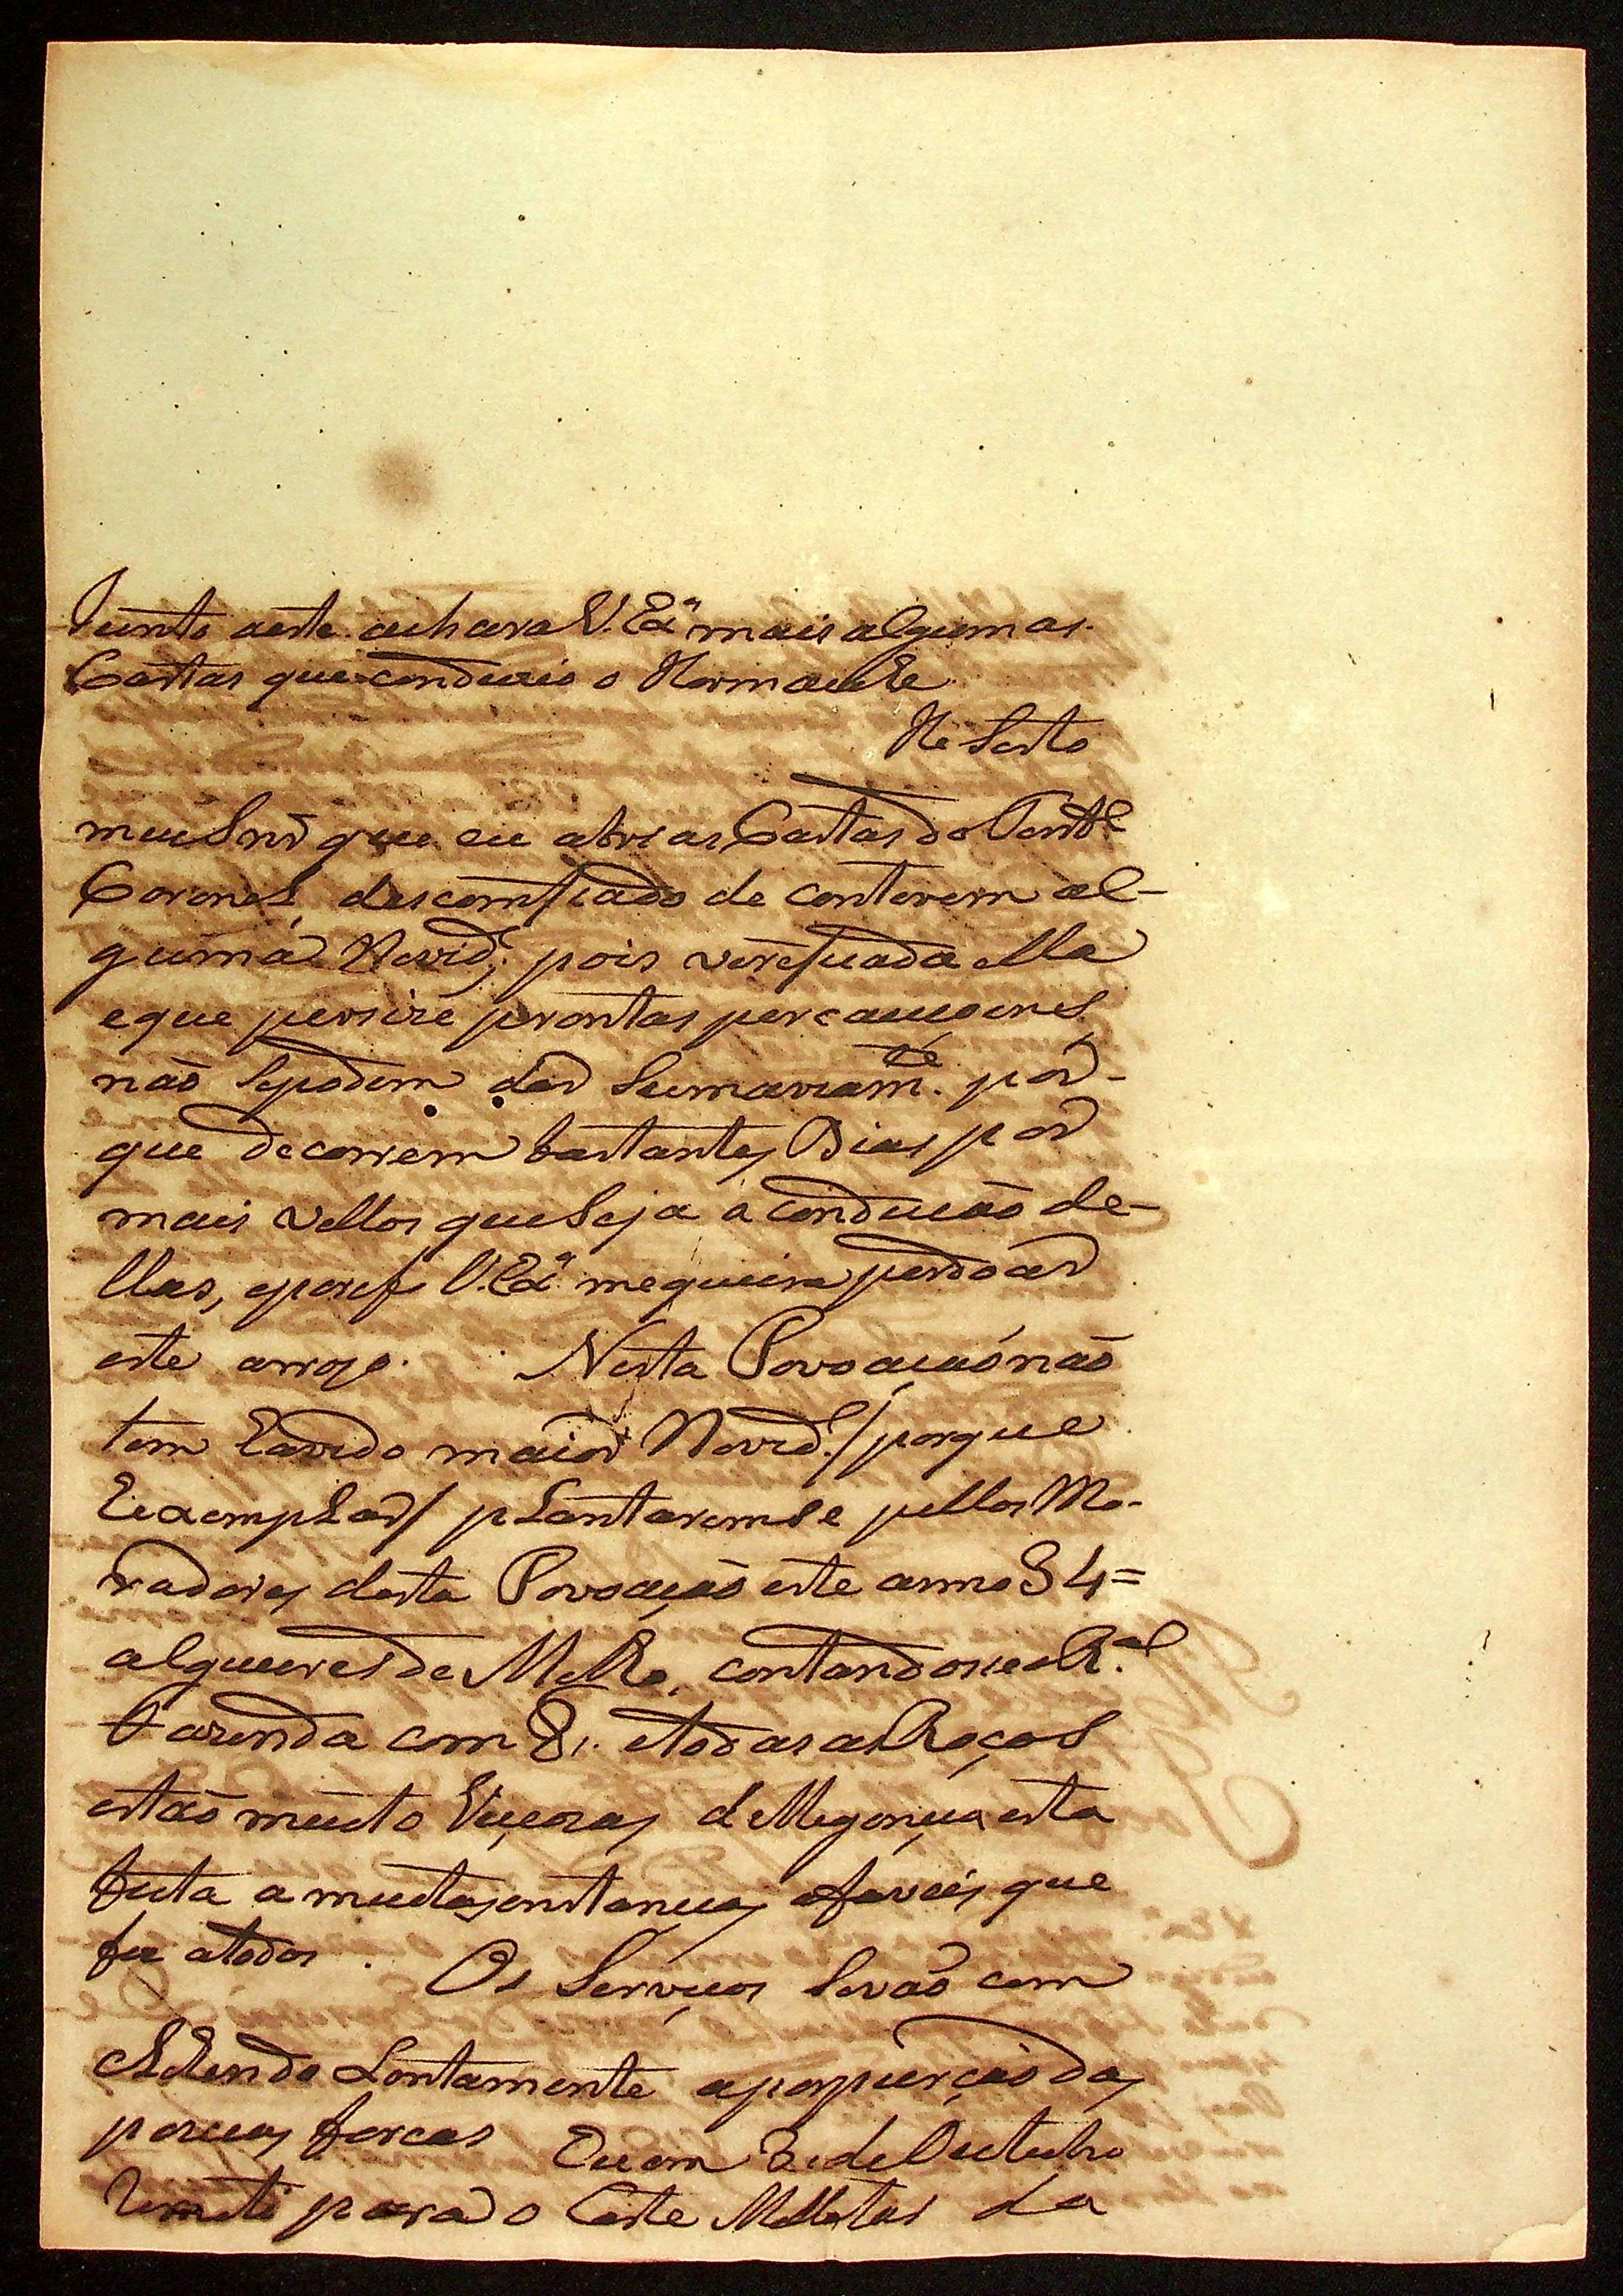 Junto aeste achara V. Exª mais algumas
Cartas que conducio o Normande
He Serto
meu Snr̃ que eu abri as Cartas do Tente
Coronel, descomfiado de conterem al-
guma Novide; pois verefucada ella
eque persize prontas
não Sepodem dar Sumariamte. por-
que decorrem bastantes Dias por
mais vellos que Seja a condução de-
llas, eporiso V. Exª me queira perdoar
este arrojo. Nesta Povoação não
tem avido maior Novide / porque
Eixemplar / plantaremse pellos Mo-
radores desta Povoação este anno 84=
alqueires de Milho, contandose a R.al
Fazenda com 8. etodas as Roças
estão muito Viçozas de Mezonça esta
feita a muitas instancias que
fis atodos. Os Serviços Sevão com
Lentamente aporpurção das
poucas forcas Eu em 2. de Outubro
remeti para o Certe da